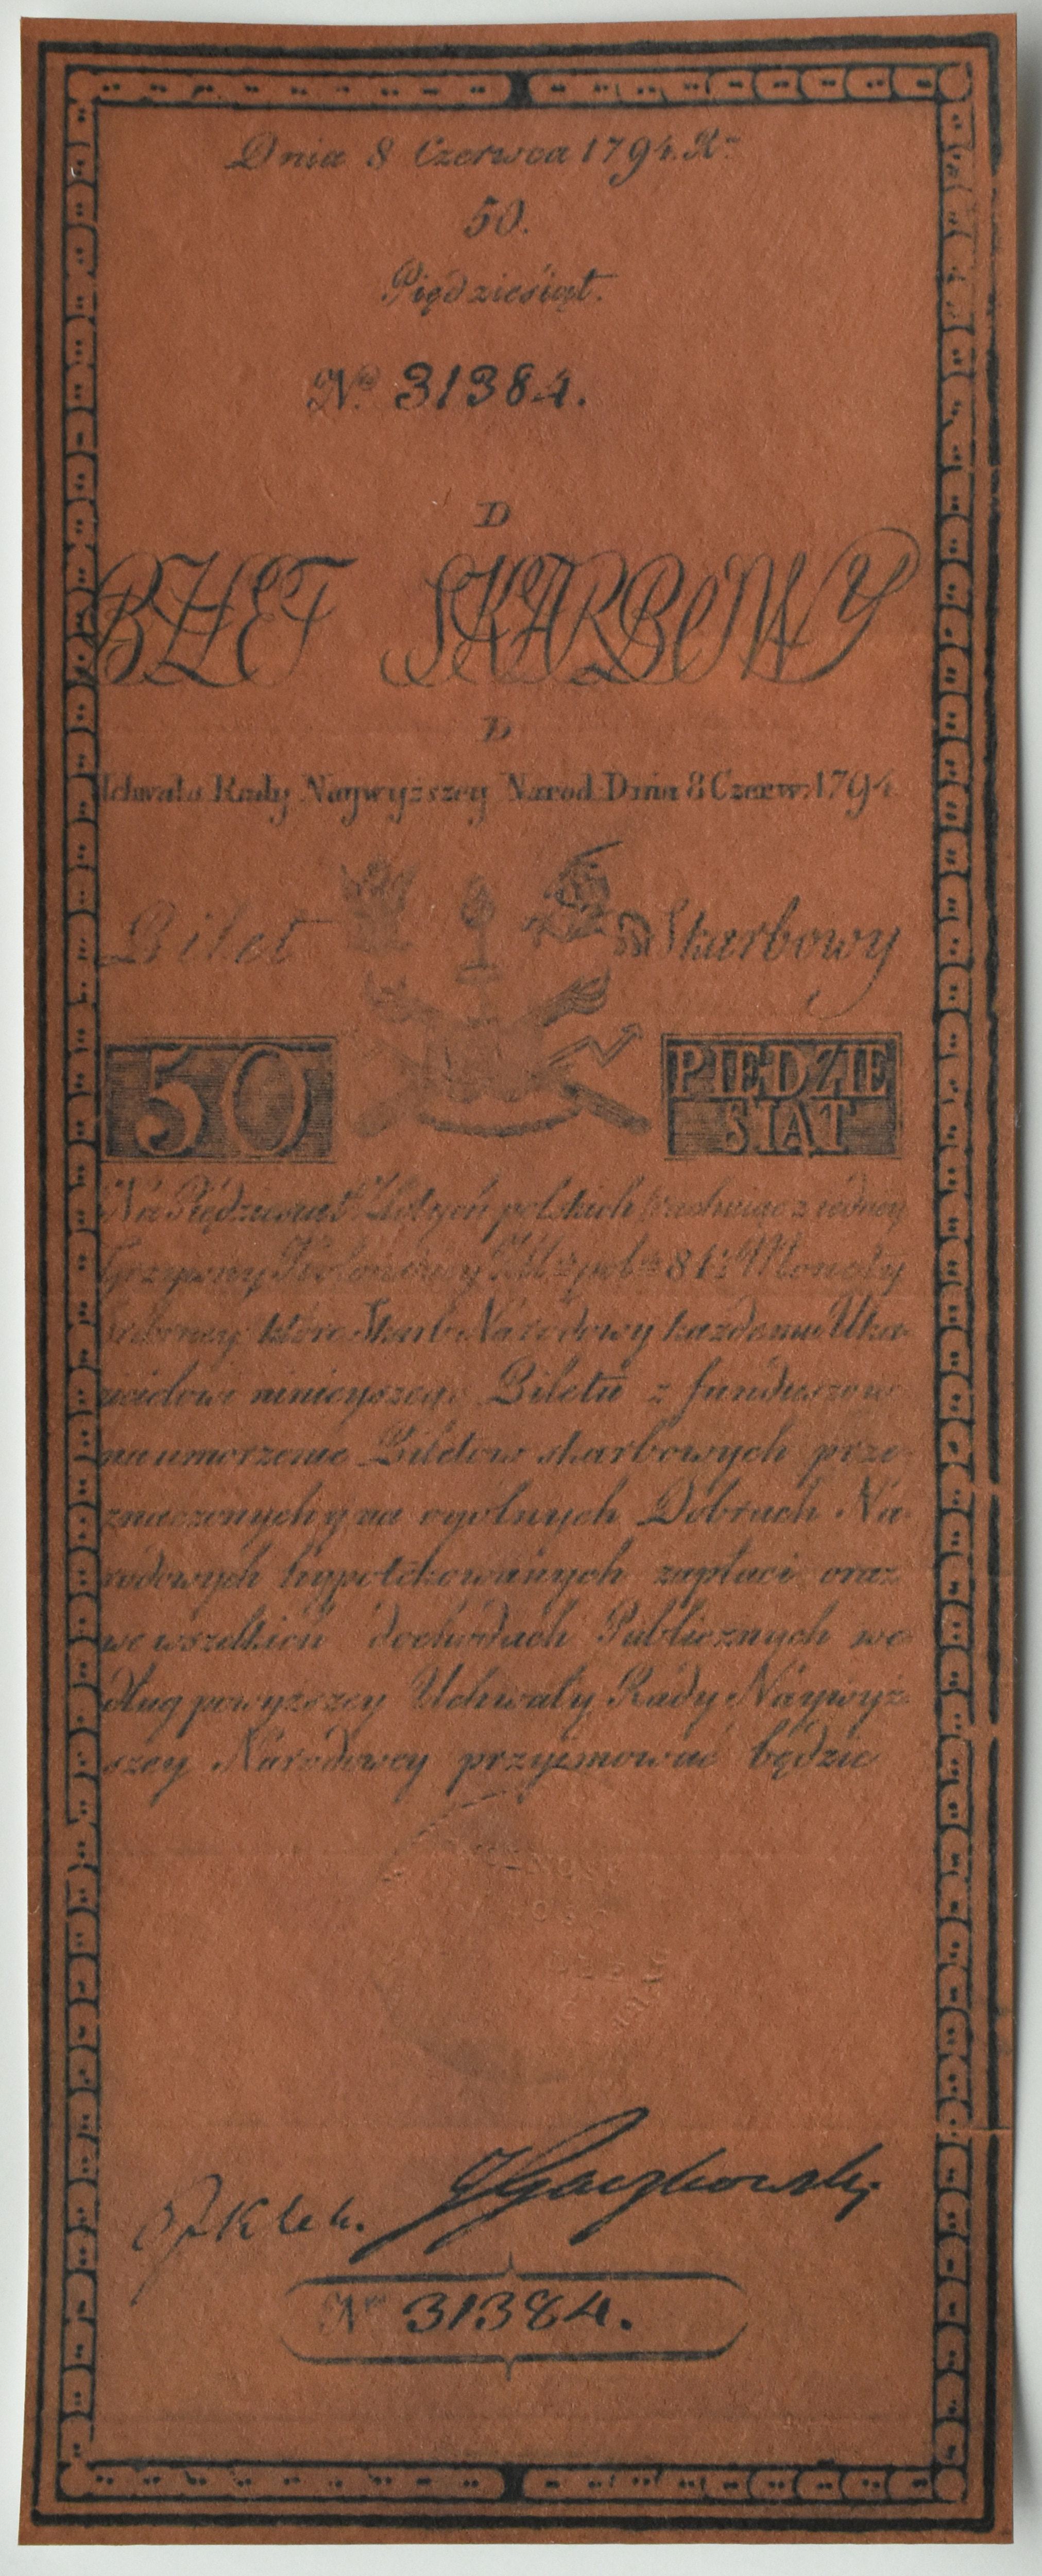 Dnia 8 Czerwca 1794. Rº
50.
Pięćdziesiąt.
Nº 31384.
D
BILET SKARBOWY
D
Uchwałą Rady Naywyższey Narod: Dnia 8 Czerw: 1794
Bilet Skarbowy
50 PIEDZIE
SIAT
Na Pięćdziesiąt Złotych polskich rachuiąc z iedney
Grzywny Kolońskiey 84½ Monety
Srebrney które Skarb Narodowy każdemu Uka-
zicielowi ninieyszego Biletu z funduszow
na umorzenie Biletow skarbowych prze-
znaczonych y na ogólnych Dobrach Na-
rodowych hypotekowanych zapłaci oraz
we wszelkich dochodach Publicznych we-
dług powyższey Uchwały Rady Naywyż-
szey Narodowey przyimować będzie
Nº 31384.